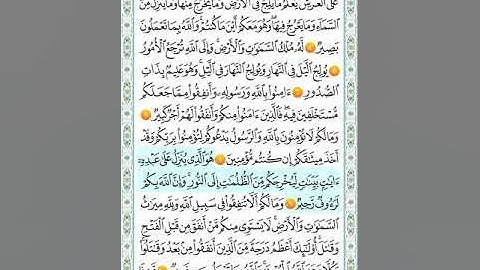 عَلَى ٱلْعَرْشِ يَعْلَمُ مَا يَلِجُ فِى ٱلْأَرْضِ وَمَا يَخْرُجُ مِنْهَا وَمَا يَنزِلُ مِنَ
ٱلسَّمَآءِ وَمَا يَعْرُجُ فِيهَا وَهُوَ مَعَكُمْ أَيْنَ مَا كُنتُمْ وَٱللَّهُ بِمَا تَعْمَلُونَ
بَصِيرٌ لَّهُۥ مُلْكُ ٱلسَّمَٰوَٰتِ وَٱلْأَرْضِ وَإِلَى ٱللَّهِ تُرْجَعُ ٱلْأُمُورُ
يُولِجُ ٱلَّيْلَ فِى ٱلنَّهَارِ وَيُولِجُ ٱلنَّهَارَ فِى ٱلَّيْلِ وَهُوَ عَلِيمٌۢ بِذَاتِ
ٱلصُّدُورِ ءَامِنُوا۟ بِٱللَّهِ وَرَسُولِهِۦ وَأَنفِقُوا۟ مِمَّا جَعَلَكُم
مُّسْتَخْلَفِينَ فِيهِ فَٱلَّذِينَ ءَامَنُوا۟ مِنكُمْ وَأَنفَقُوا۟ لَهُمْ أَجْرٌ كَبِيرٌ
وَمَا لَكُمْ لَا تُؤْمِنُونَ بِٱللَّهِ وَٱلرَّسُولُ يَدْعُوكُمْ لِتُؤْمِنُوا۟ بِرَبِّكُمْ وَقَدْ
أَخَذَ مِيثَٰقَكُمْ إِن كُنتُم مُّؤْمِنِينَ هُوَ ٱلَّذِى يُنَزِّلُ عَلَىٰ عَبْدِهِۦٓ
ءَايَٰتٍۭ بَيِّنَٰتٍ لِّيُخْرِجَكُم مِّنَ ٱلظُّلُمَٰتِ إِلَى ٱلنُّورِ وَإِنَّ ٱللَّهَ بِكُمْ
لَرَءُوفٌ رَّحِيمٌ وَمَا لَكُمْ أَلَّا تُنفِقُوا۟ فِى سَبِيلِ ٱللَّهِ وَلِلَّهِ مِيرَٰثُ
ٱلسَّمَٰوَٰتِ وَٱلْأَرْضِ لَا يَسْتَوِى مِنكُم مَّنْ أَنفَقَ مِن قَبْلِ ٱلْفَتْحِ
وَقَٰتَلَ أُو۟لَٰٓئِكَ أَعْظَمُ دَرَجَةً مِّنَ ٱلَّذِينَ أَنفَقُوا۟ مِنۢ بَعْدُ وَقَٰتَلُوا۟